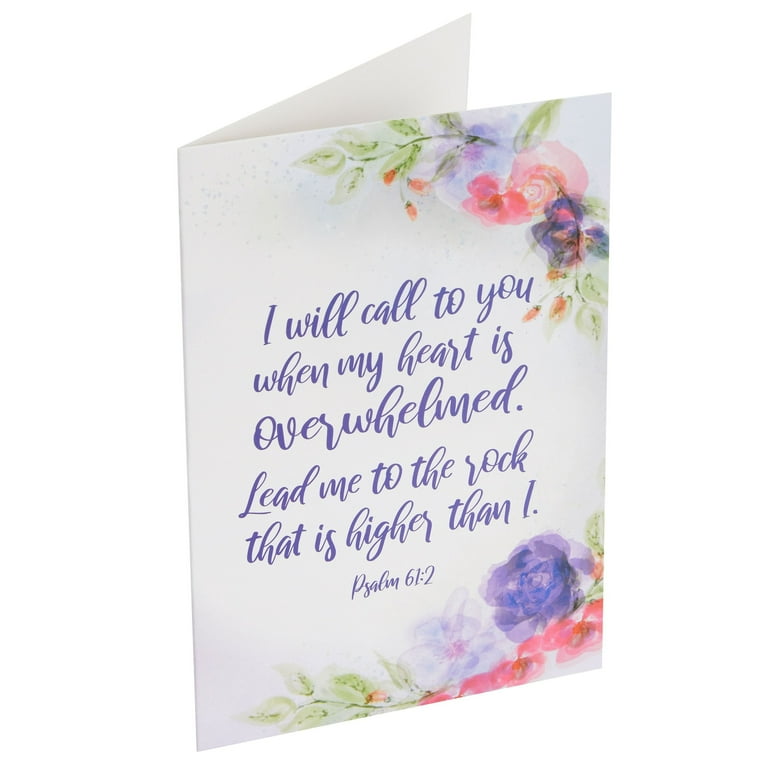 I will call to you
when my heart is
overwhelmed.
Lead me to the rock
that is higher than I.
Psalm 61:2